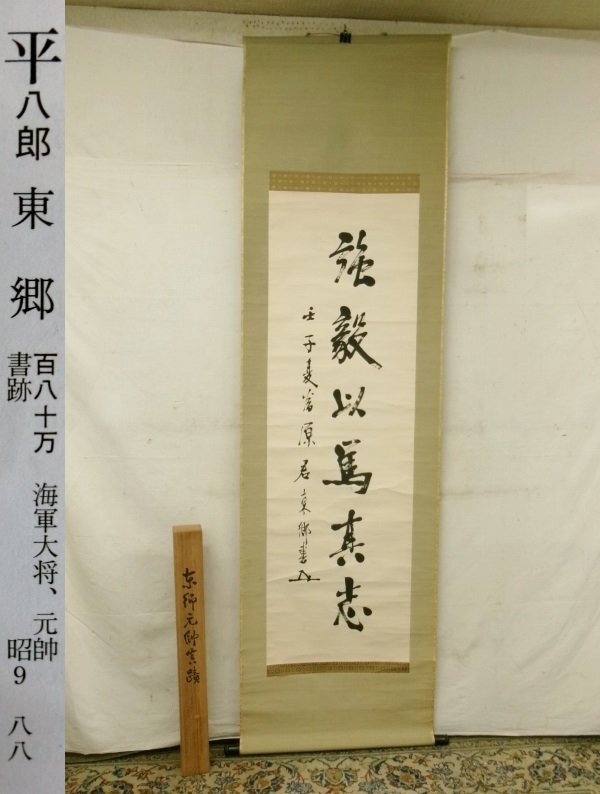 平八郎 東郷
百八十万 海軍大将、元帥
書跡 昭9 八八
強毅以篤真志
壬子夏為原君 東郷書
東郷元帥真蹟